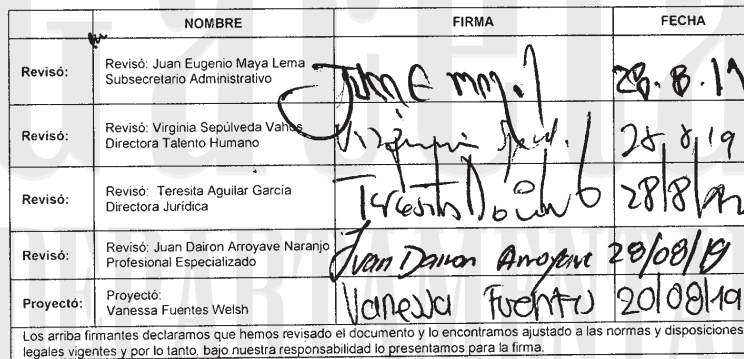 NOMBRE FIRMA FECHA
Revisó: Revisó: Juan Eugenio Maya Lema
Subsecretario Administrativo
Juan E 28.8.19
Revisó: Revisó: Virginia Sepúlveda Vahos
Directora Talento Humano
Virginia 28,8,19
Revisó: Revisó: Teresita Aguilar García
Directora Jurídica
Teresita 28/8/
Revisó: Revisó: Juan Dairon Arroyave Naranjo
Profesional Especializado
Juan Dairon Arroyave 28/08/19
Proyectó: Proyectó:
Vanessa Fuentes Welsh
Vanessa Fuentes 20/08/19
Los arriba firmantes declaramos que hemos revisado el documento y lo encontramos ajustado a las normas y disposiciones
legales vigentes y por lo tanto, bajo nuestra responsabilidad lo presentamos para la firma.